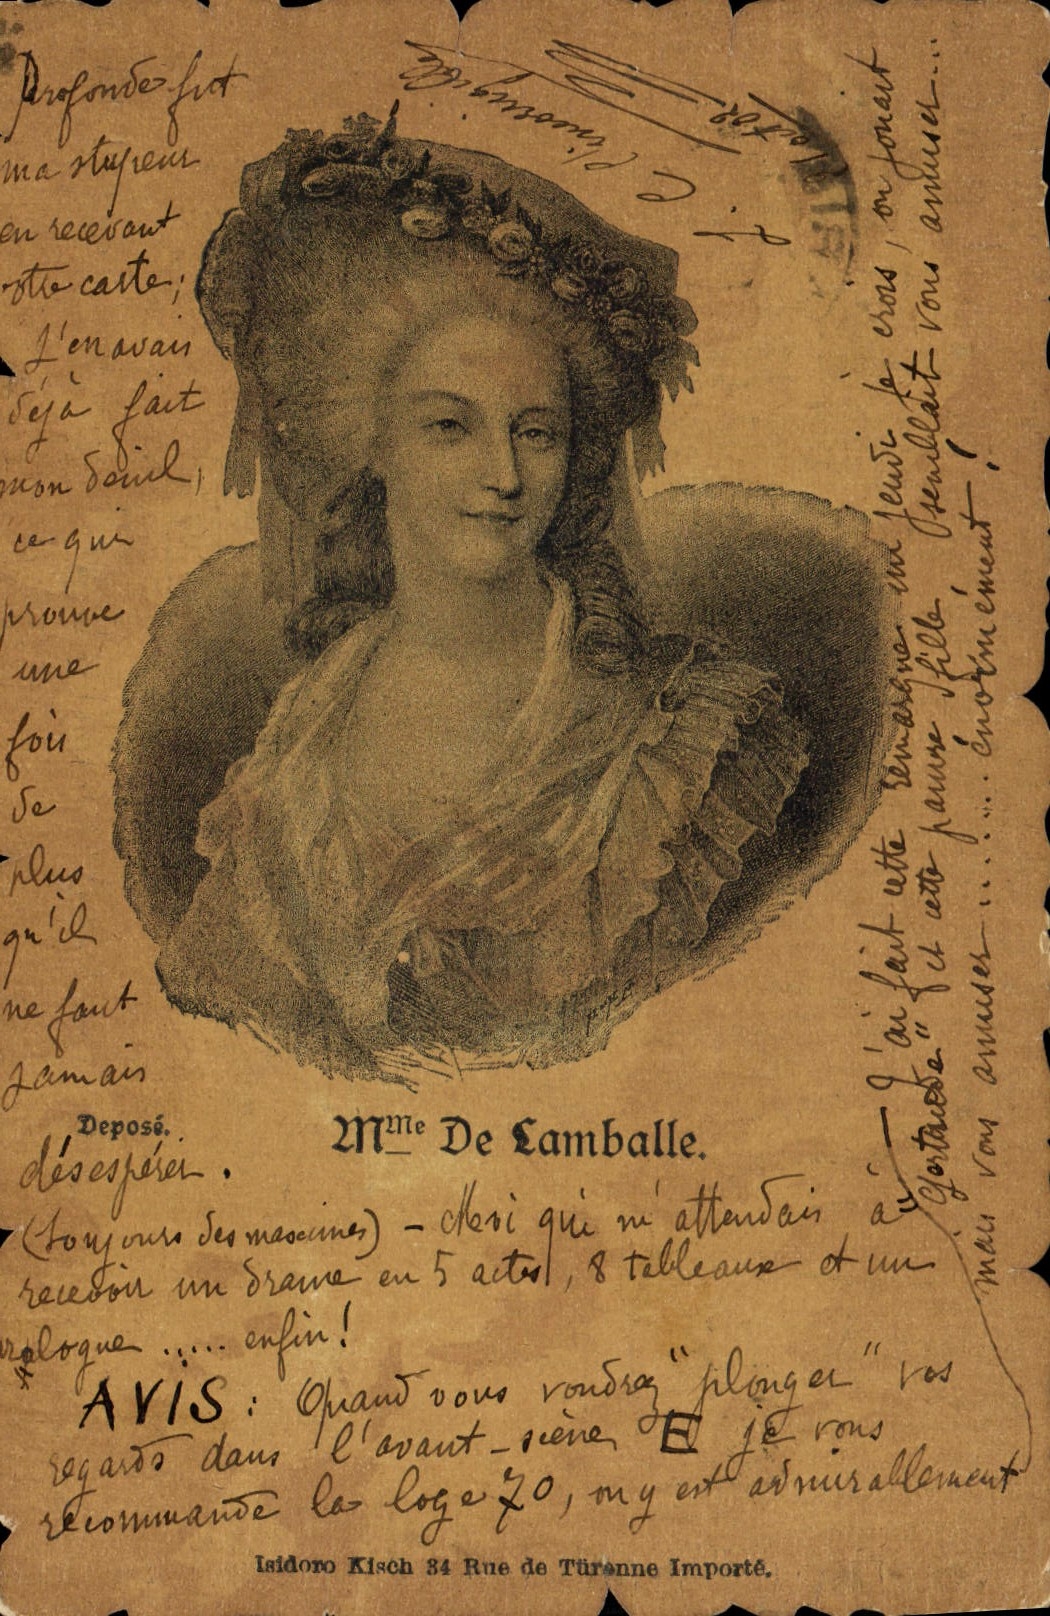 Profonde fut
ma stupeur
en recevant
otre carte;
j'en avais
déjà fait
mon deuil,
ce qui
prouve
une
fois
de
plus
qu'il
ne faut
jamais
Deposé.
Mme De Lamballe.
désespérer.
(toujours des maximes) - Moi qui m'attendais à
recevoir un drame en 5 actes, 8 tableaux et un
prologue ..... enfin!
AVIS: Quand vous voudrez "plonger" vos
regards dans l'avant-scène E je vous
recommande la loge 70, on y est admirablement
— J'ai fait cette remarque un jeudi je crois, on jouait
"Gertrude" et cette pauvre fille semblait vous amuser...
mais vous amuser ......... énormément!
J. C.
août 02
Isidoro Kisch 34 Rue de Türenne Importé.